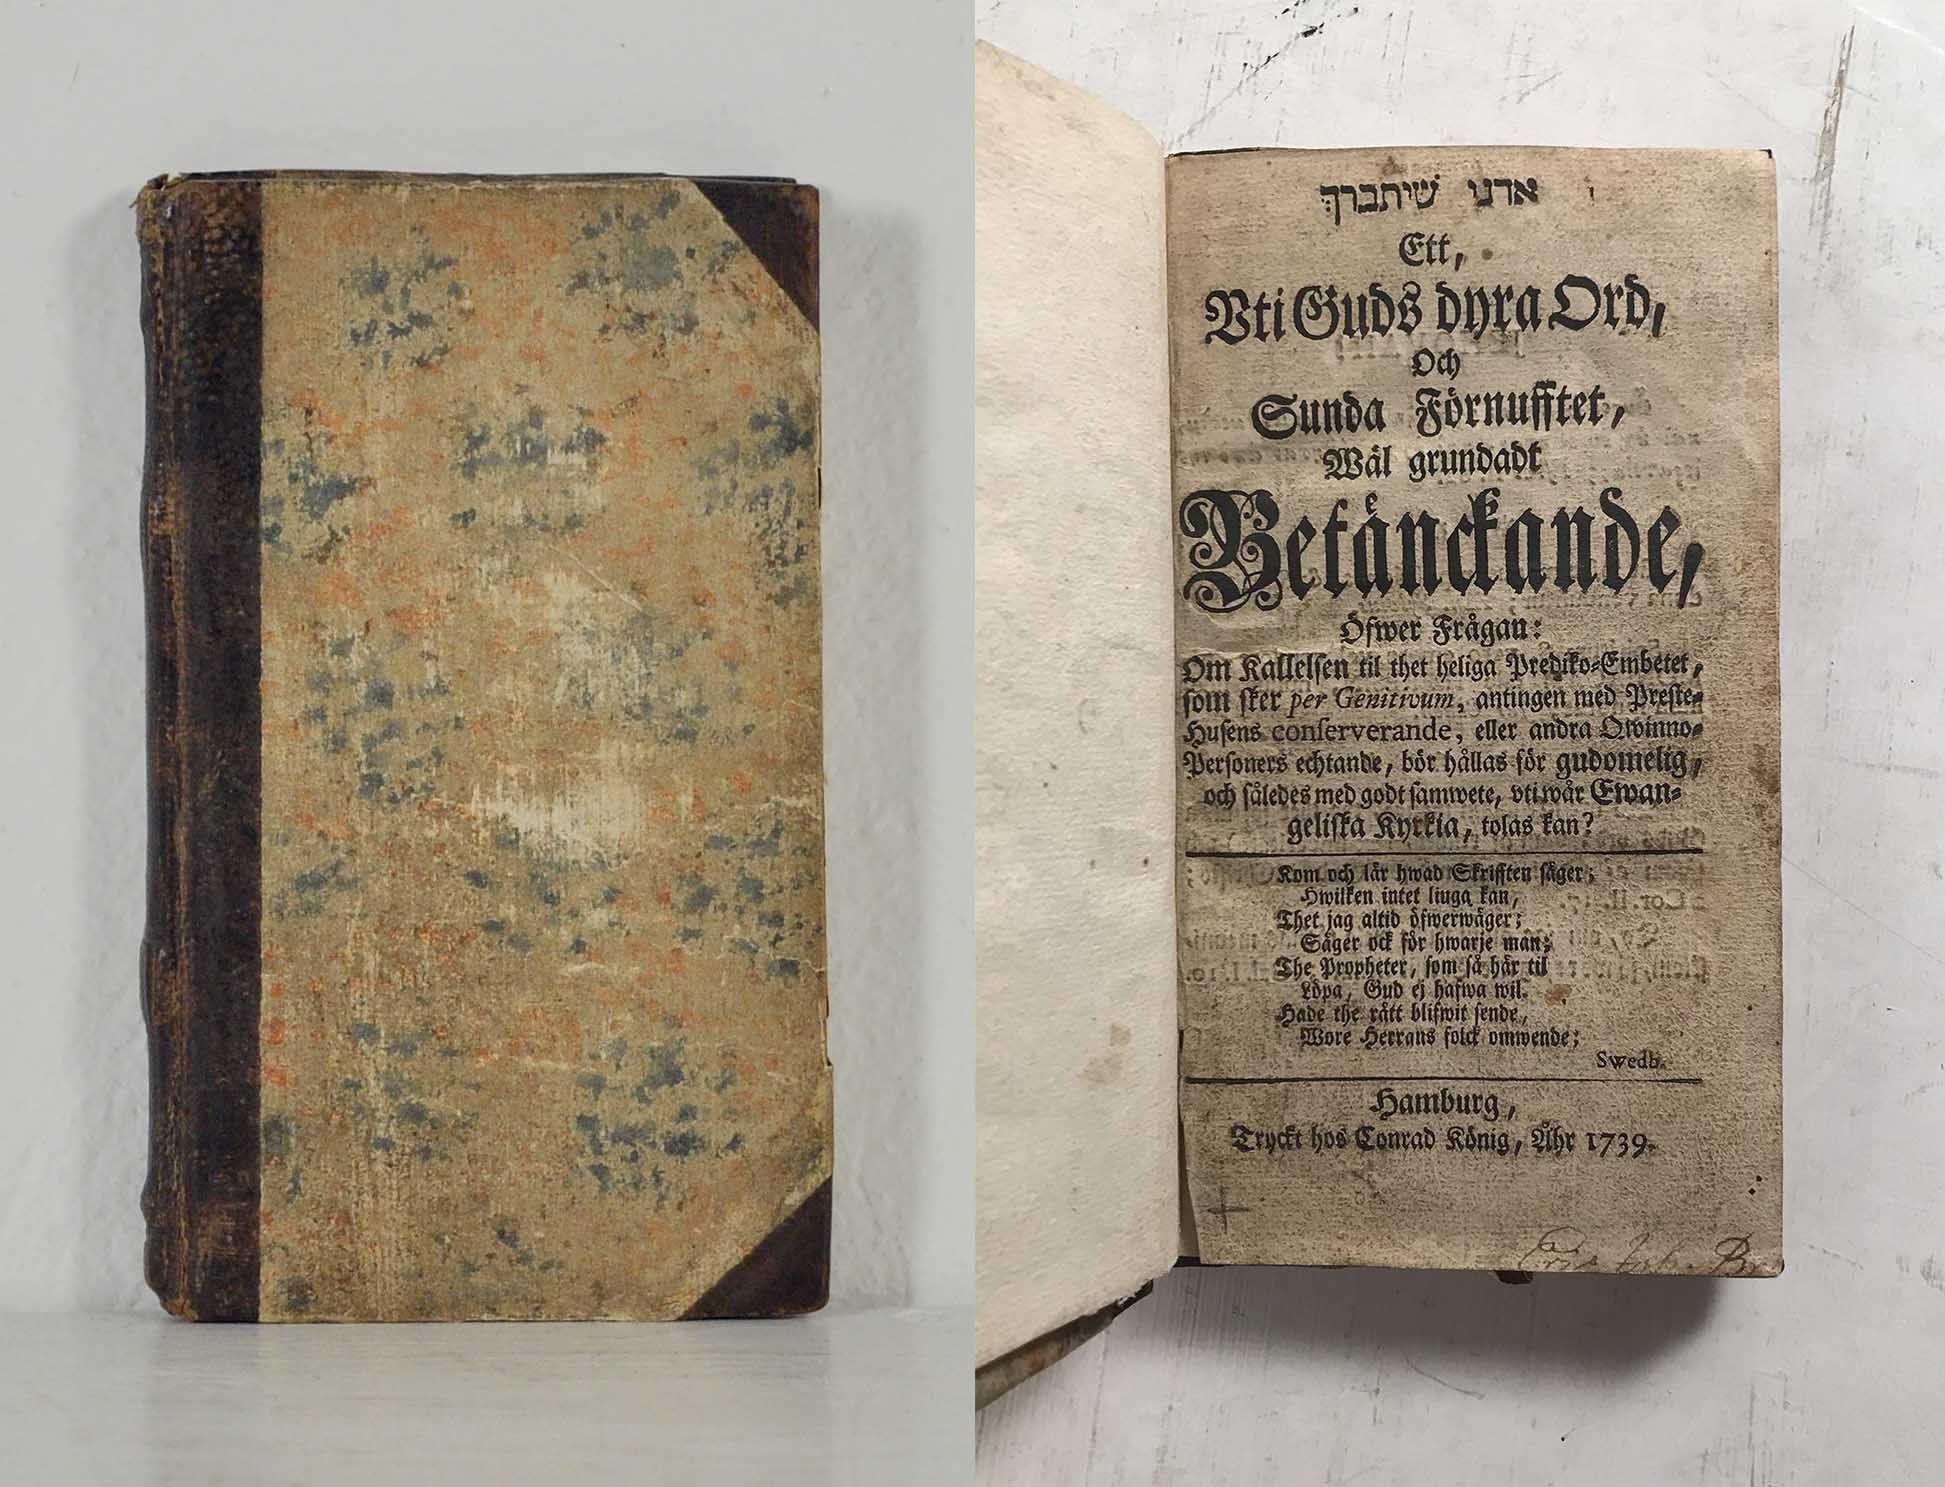 אדני שיתברך
Ett,
Vti Guds dyra Ord,
Och
Sunda Förnufftet,
Wäl grundadt
Betänckande,
Öfwer Frågan:
Om Kallelsen til thet heliga Prediko-Embetet,
som sker per Genitivum, antingen med Preste-
Husens conserverande, eller andra Qwinno-
Personers echtande, bör hållas för gudomelig,
och således med godt samwete, vti wår Ewan-
geliska Kyrkia, tolas kan?
Kom och lär hwad Skrifften säger;
Hwilken intet liuga kan,
Thet jag altid öfwerwäger;
Säger ock för hwarje man;
The Propheter, som så här til
Löpa, Gud ej hafwa wil.
Hade the rätt blifwit sende,
Wore Herrans folck omwende;
Swedb.
Hamburg,
Tryckt hos Conrad König, Åhr 1739.
Eric Joh.